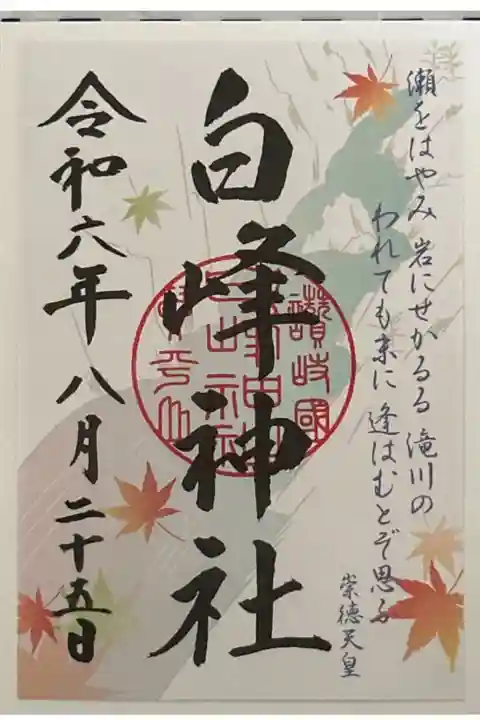 瀬をはやみ 岩にせかるる 滝川の
われても末に 逢はむとぞ思ふ
崇徳天皇
白峰神社
讃岐國
令和六年八月二十五日